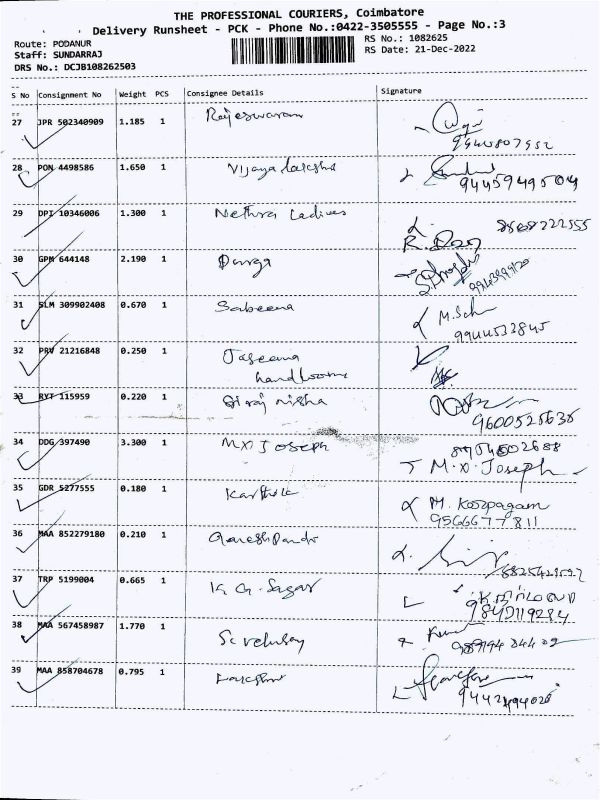 THE PROFESSIONAL COURIERS, Coimbatore
Delivery Runsheet - PCK - Phone No.:0422-3505555 - Page No.:3
Route: PODANUR
RS No.: 1082625
Staff: SUNDARRAJ
RS Date: 21-Dec-2022
DRS No.: DCJB108262503
S No Consignment No Weight PCS Consignee Details Signature
27 JPR 502340909 1.185 1 Rajeswaram
9944807552
28 PON 4498586 1.650 1 Vijaya
29 DPI 10346006 1.300 1 Nethra Ladives
30 GPM 644148 2.190 1 Durga
31 SLM 309902408 0.670 1 Sabeena
9944533845
32 PRV 21216848 0.250 1 Jaseema
handlooms
33 RYT 115959 0.220 1 Siraj nisha
9600525635
34 DDG 397490 3.300 1 M.X JOSEPH
M.X. Joseph
35 GDR 5277555 0.180 1 Karthik
M. Koopagam
9566677811
36 MAA 852279180 0.210 1
37 TRP 5199004 0.665 1 K. G. Sagar
9843119284
38 MAA 567458987 1.770 1 Sc velusay
39 MAA 858704678 0.795 1